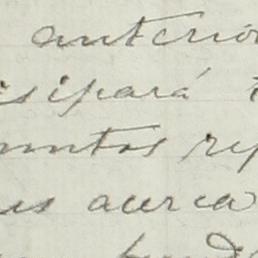 anterio
isipará t
untos rep
us acerca